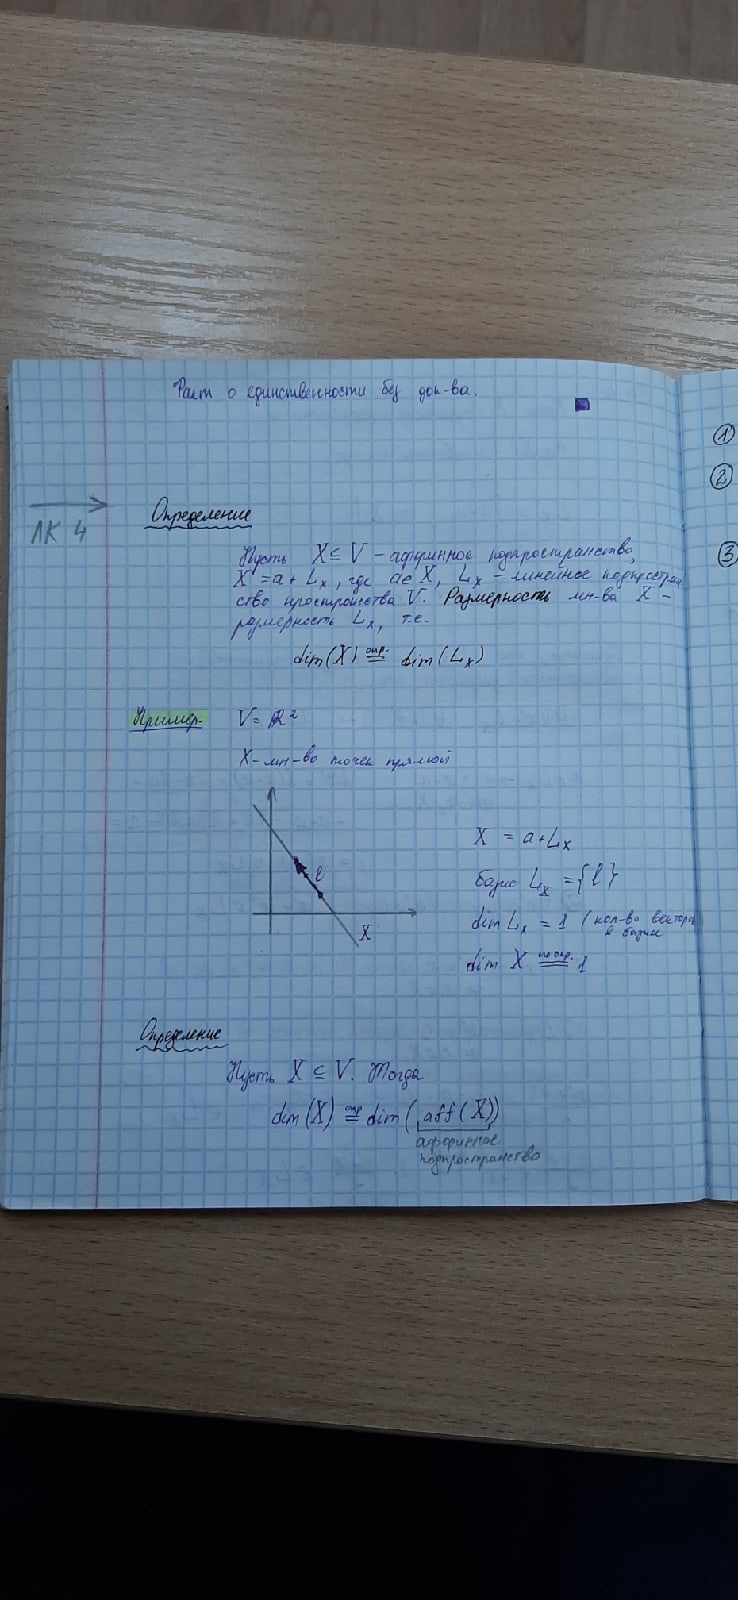 Факт о единственности без док-ва.
①
②
ЛК 4
Определение
③
Пусть X ⊆ V – аффинное подпространство,
X = a + Lₓ, где a ∈ X, Lₓ – линейное подпростран
ство пространства V. Размерность мн-ва X –
размерность Lₓ, т.е.
dim(X) опр. = dim(Lₓ)
Пример. V = ℝ²
X – мн-во точек прямой
X = a + Lₓ
базис Lₓ = {l}
l
dim Lₓ = 1 (кол-во вектор
в базисе
X
dim X по опр. = 1
Определение
Пусть X ⊆ V. Тогда
dim(X) опр = dim(aff(X))
аффинное
подпространство